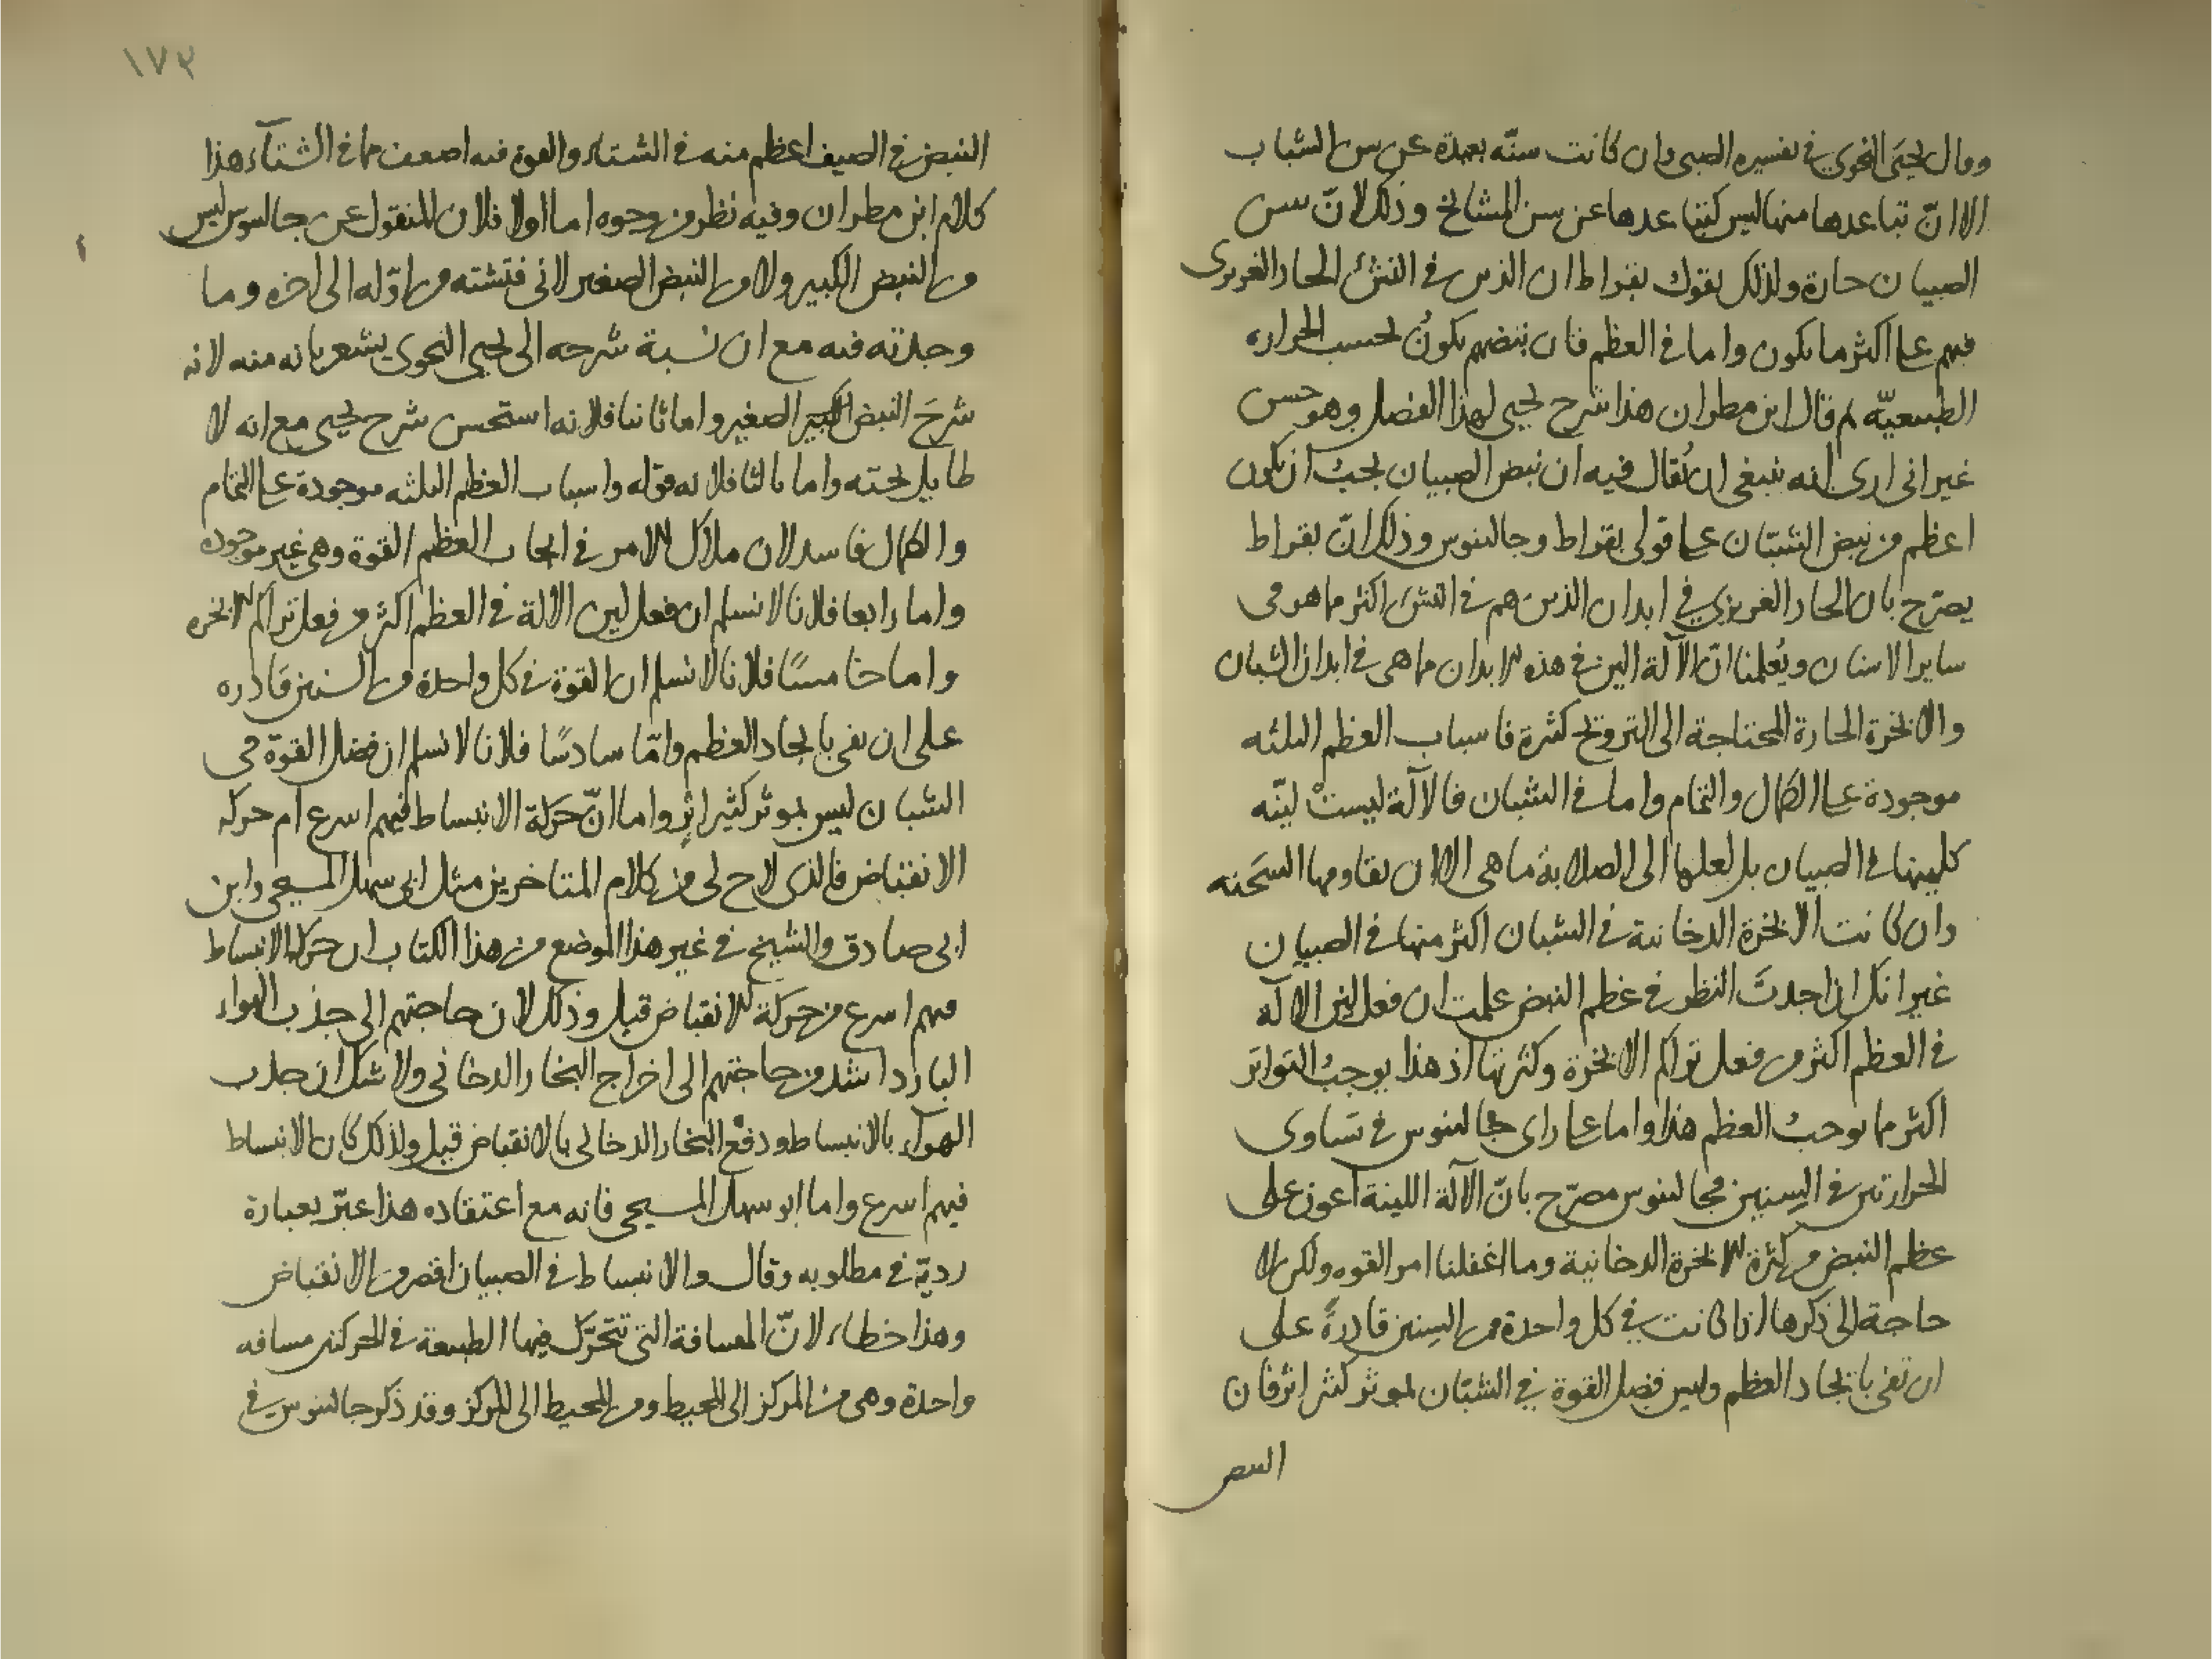 وقال يحيى النحوي في تفسيره الصبى وان كانت سنّه بعيدة عن سن الشباب
الا انّ تباعدها منها ليس كتباعدها عن سن المشائخ وذلك لانّ سن
الصبيان حارة ولذلك يقول بقراط ان الذين في النشئ الحار الغريزى
فيهم على اكثر ما يكون واما في العظم فان نبضهم يكونُ بحسب الحراره
الطبيعيّه ثم قال ابن مطران هذا شرح يحيى لهذا الفصل وهو حسن
غير انى ارى انه ينبغى ان يُقال فيه ان نبض الصبيان يجبُ ان يكون
اعظم من نبض الشبّان على قولى بقراط وجالينوس وذلك انّ بقراط
يصرّح بان الحار الغريزي في ابدان الذين هم في النشئ اكثر مما هو في
ساير الاسنان ويُعلمنا انّ الآلة الين في هذه الابدان مما هى في ابدان الشبان
والابخرة الحارة المحتاجة الى الترويح كثيرة فاسباب العظم الثلثه
موجودة على الكمال والتمام واما في الشبان فالآلة ليستْ ليّنه
كلينها في الصبيان بل لعلها الى الصلابة ما هى الا ان يقاومها السَحنه
وان كانت الابخرة الدخانية في الشبان اكثر منها في الصبيان
غير انك اذا جدتَ النظر في عظم النبض علمت ان فعل لين الآله
في العظم اكثر من فعل تراكم الابخرة وكثرتها اذ هذا يوجبُ التواتر
اكثر مما يوجبُ العظم هذا واما على راى جالينوس في تساوى
الحرارتين في السِنين فجالينوس مصرّح بانّ الآلة اللينة اعون على
عظم النبض من كثرة الابخرة الدخانية وما اغفلنا امر القوه ولكن لا
حاجة الى ذكرها اذا كانت في كل واحدة من السِنين قادرةً على
ان تفى بايجاد العظم وليس فضل القوة في الشبّان بموثر كثير اثر فان
النبض
١٧٣
النبض في الصيف اعظم منه في الشتاء والقوة فيه اضعف مما في الشتآء هذا
كلام ابن مطران وفيه نظر من وجوه اما اولا فلان المنقول عن جالينوس ليس
من النبض الكبير ولا من النبض الصغير لانى فتشته من اوّله الى اخره وما
وجدته فيه مع ان نسبة شرحه الى يحيى النحوى يشعر بانه منه لانه
شرحَ النبض الصغير واما ثانيا فلانه استحسن شرح يحيى مع انه لا
طايل تحته واما ثالثا فلان قوله واسباب العظم الثلثه موجودة على التمام
والكمال فاسد لان ملاك الامر في ايجاب العظم القوة وهى غير موجوده
واما رابعا فلانا لا نسلم ان فعل لين الالة في العظم اكثر من فعل تراكم الابخره
واما خامسًا فلانا لا نسلم ان القوة في كل واحدة من السنين قادره
على ان تفى بايجاد العظم وامّا سادسًا فلانا لا نسلم ان فضل القوّة في
الشبان ليس بموثر كثير اثر واما انّ حركة الانبساط فيهم اسرع ام حركه
الانقباض فالذى لاح لى من كلام المتاخرين مثل ابى سهل المسيحى وابن
ابى صادق والشيخ في غير هذا الموضع من هذا الكتاب ان حركة الانبساط
فيهم اسرع من حركة الانقباض قيل وذلك لان حاجتهم الى جذب الهواء
البارد اشد من حاجتهم الى اخراج البخار الدخانى ولا شك ان جذب
الهوآء بالانبساط ودفع البخار الدخانى بالانقباض قيل ولذلك كان الانبساط
فيهم اسرع واما ابو سهل المسيحى فانه مع اعتقاده هذا عبّر بعبارة
رديّة في مطلوبه وقال والانبساط في الصبيان اقصر من الانقباض
وهذا خطاء لانّ المسافة التى تتحرّك فيها الطبيعة في الحركتين مسافه
واحدة وهى من المركز الى المحيط ومن المحيط الى المركز وقد ذكر جالينوس في